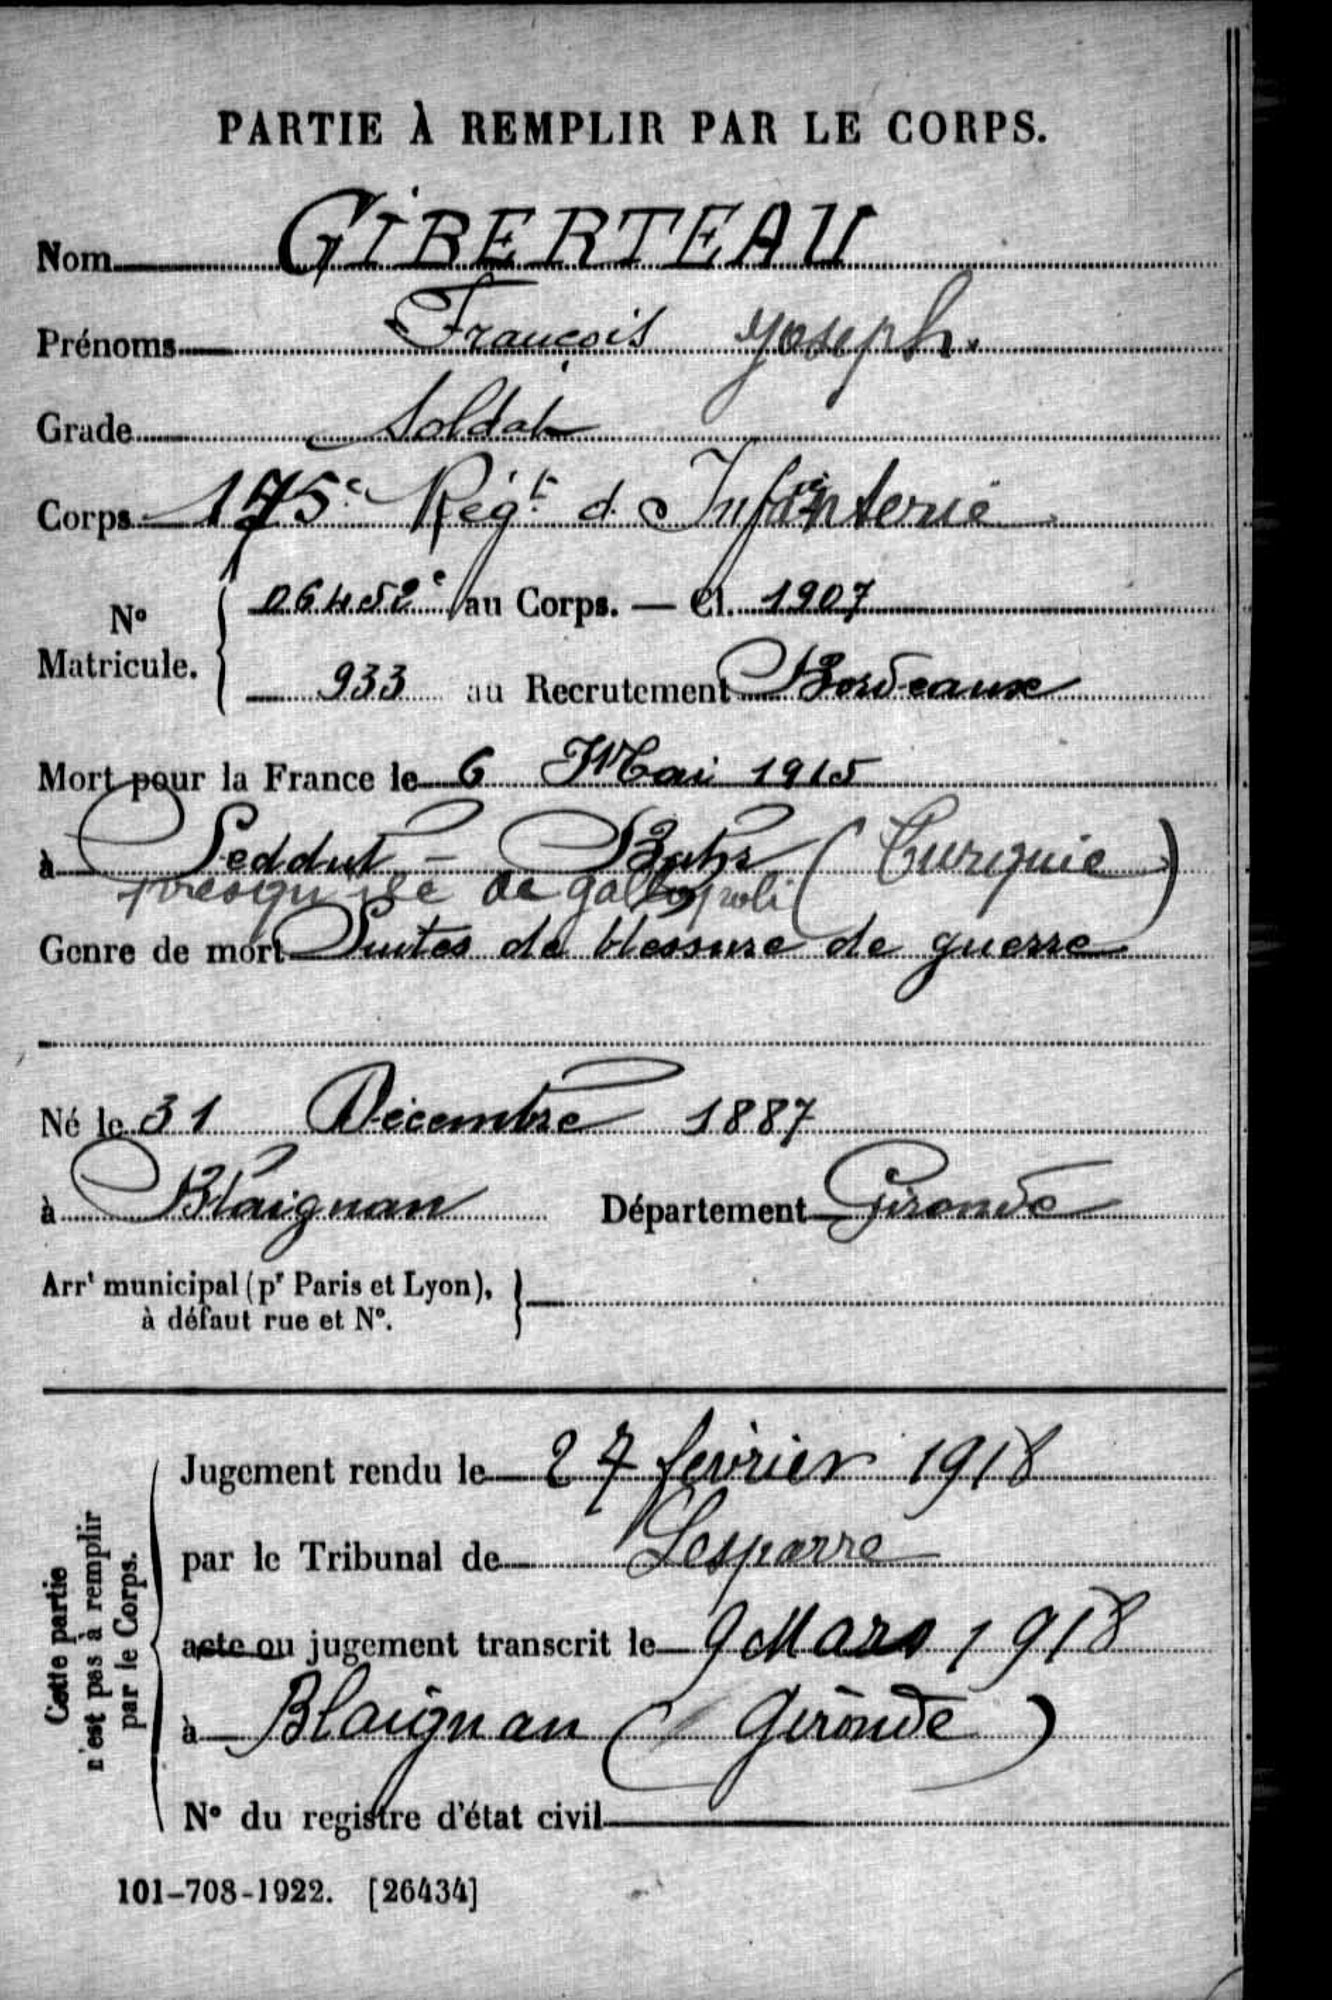 PARTIE À REMPLIR PAR LE CORPS.
Nom GIBERTEAU
Prénoms François Joseph.
Grade Soldat
Corps 175e Régt d'Infanterie
No Matricule. 06452 au Corps. — Cl. 1907
933 au Recrutement Bordeaux
Mort pour la France le 6 Mai 1915
à Seddul-Bahr (Turquie)
presqu'île de gallipoli
Genre de mort Suites de blessure de guerre
Né le 31 Décembre 1887
à Blaignan Département Gironde
Arrt municipal (pr Paris et Lyon),
à défaut rue et No.
Cette partie
n'est pas à remplir
par le Corps.
Jugement rendu le 27 février 1918
par le Tribunal de Lesparre
acte ou jugement transcrit le 9 Mars 1918
à Blaignan (Gironde)
No du registre d'état civil
101-708-1922. [26434]